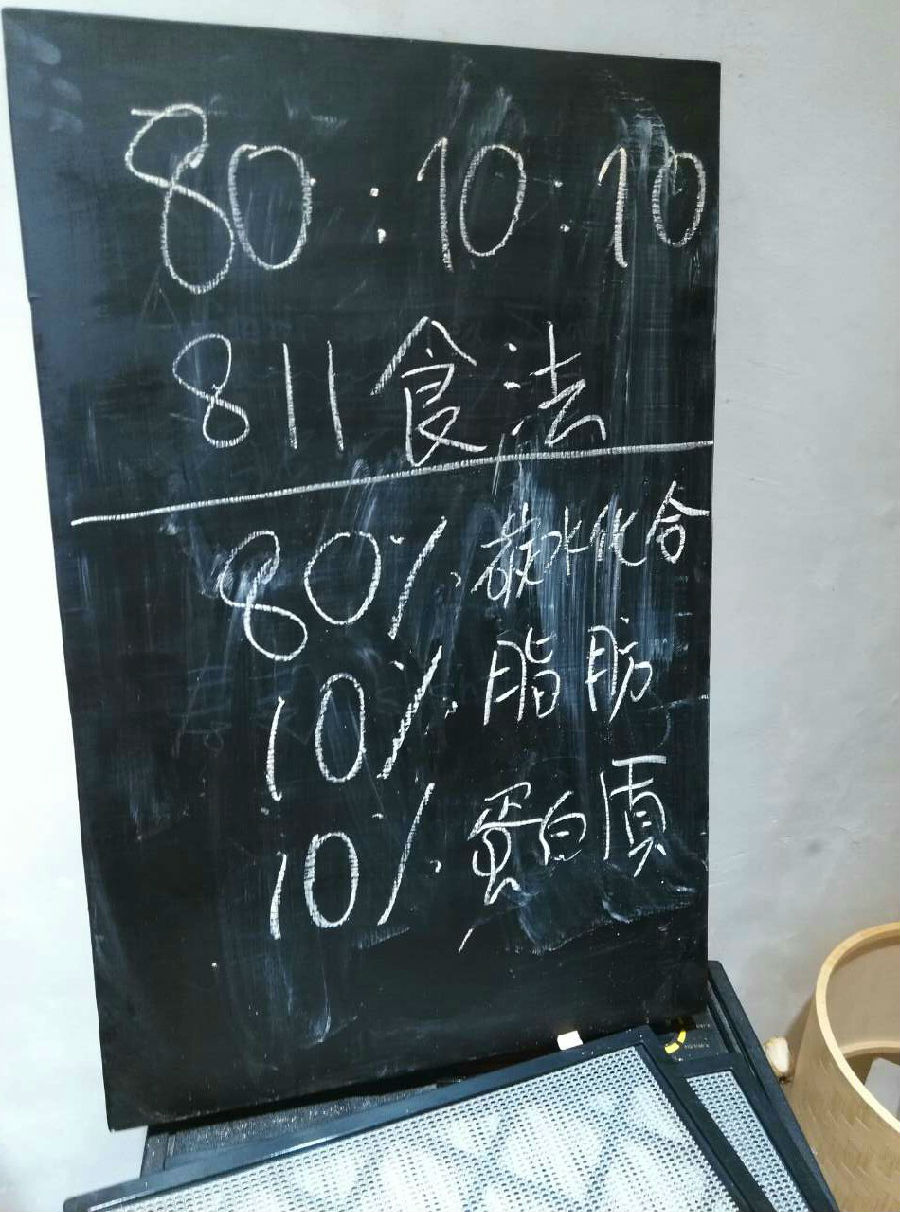 80:10:10
811食法
80% 碳水化合
10% 脂肪
10% 蛋白質